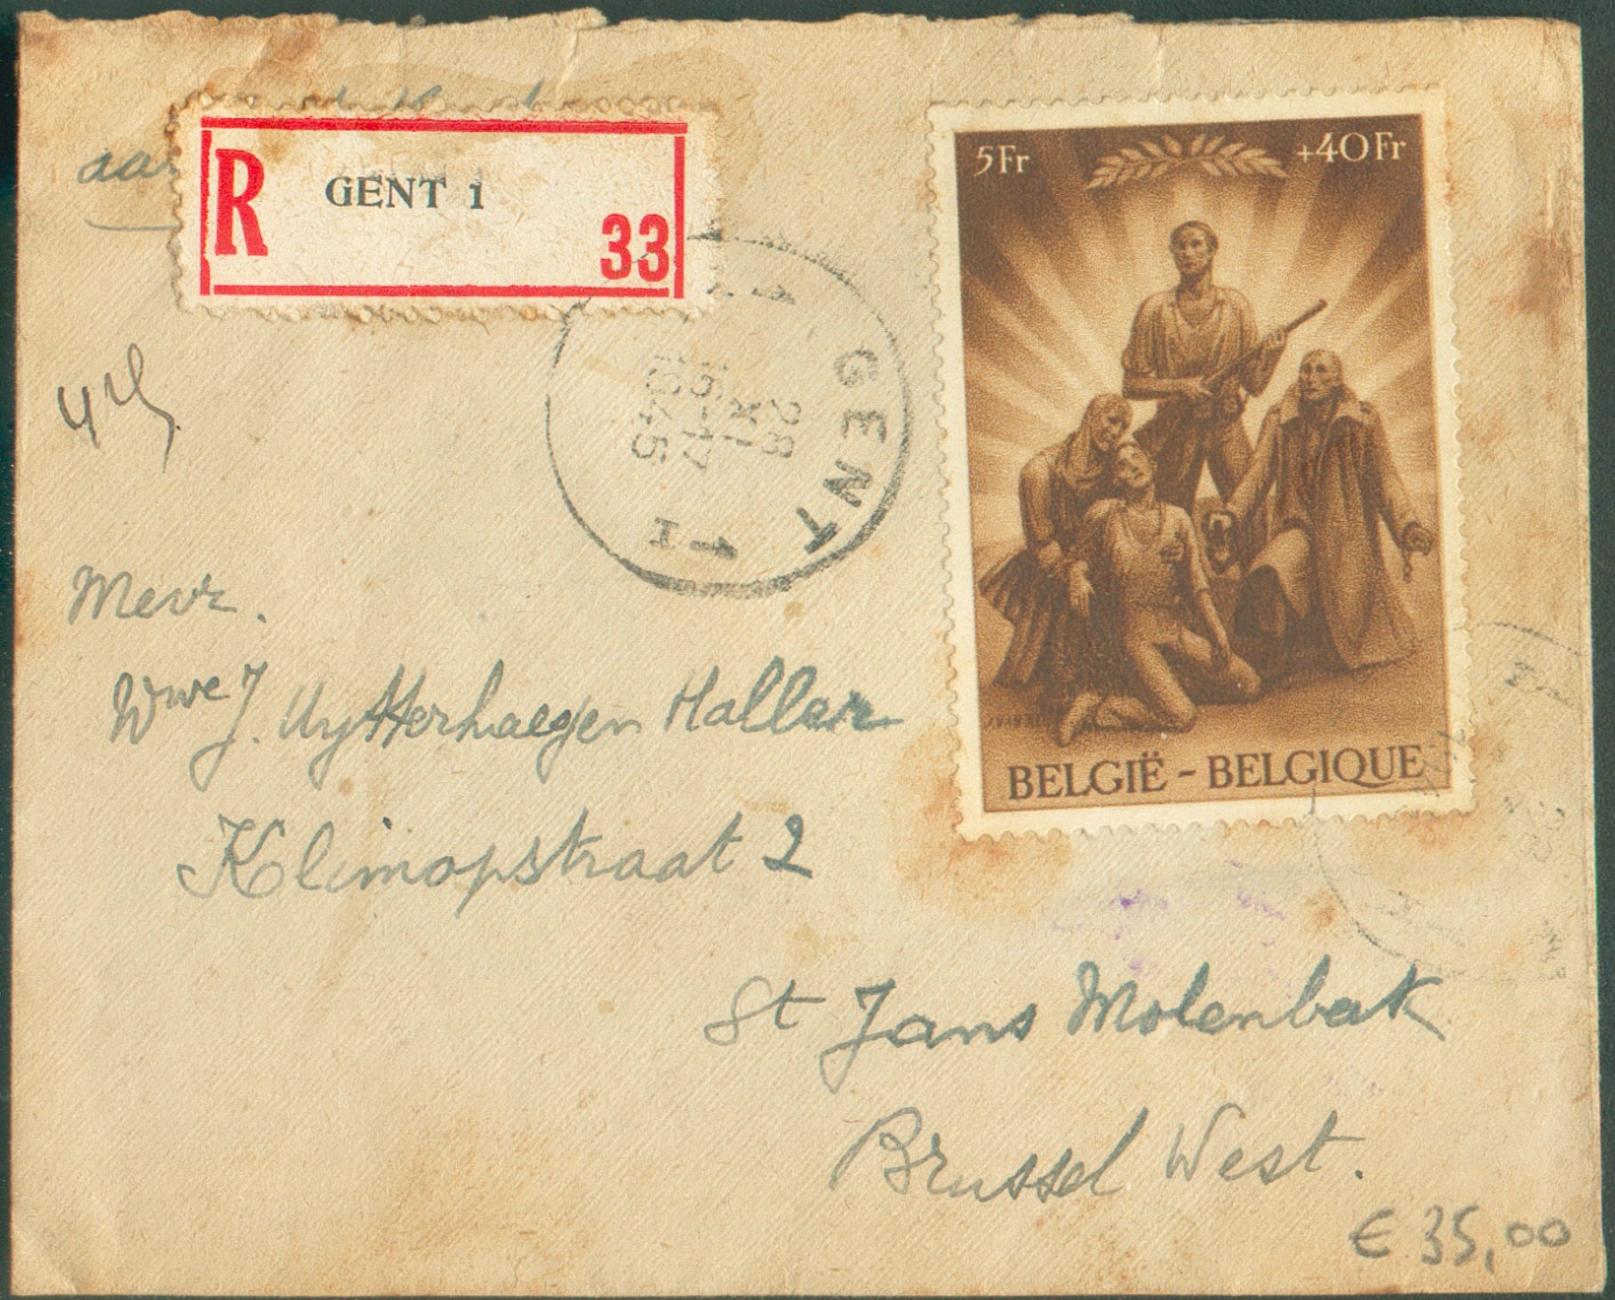 R GENT 1 33
5Fr +40Fr
GENT 1
28
XI
16-17
1945
Mevr.
Wwe J. Uytterhaegen Haller
Klimopstraat 2
BELGIË - BELGIQUE
St Jans Molenbeek
Brussel West.
€ 35,00